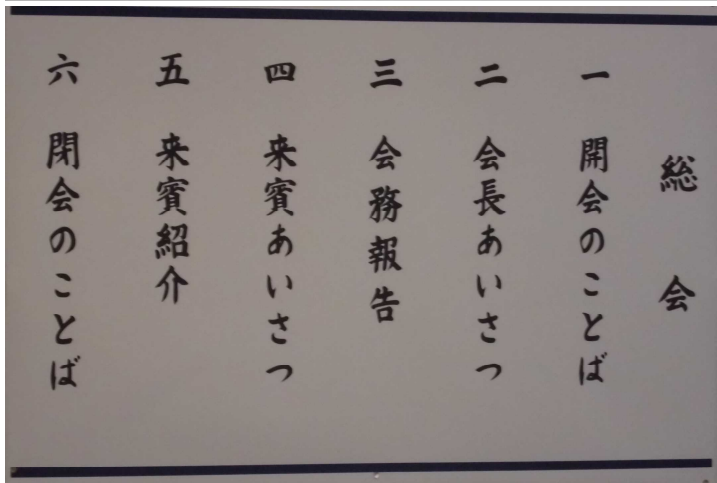 総会
一 開会のことば
二 会長あいさつ
三 会務報告
四 来賓あいさつ
五 来賓紹介
六 閉会のことば